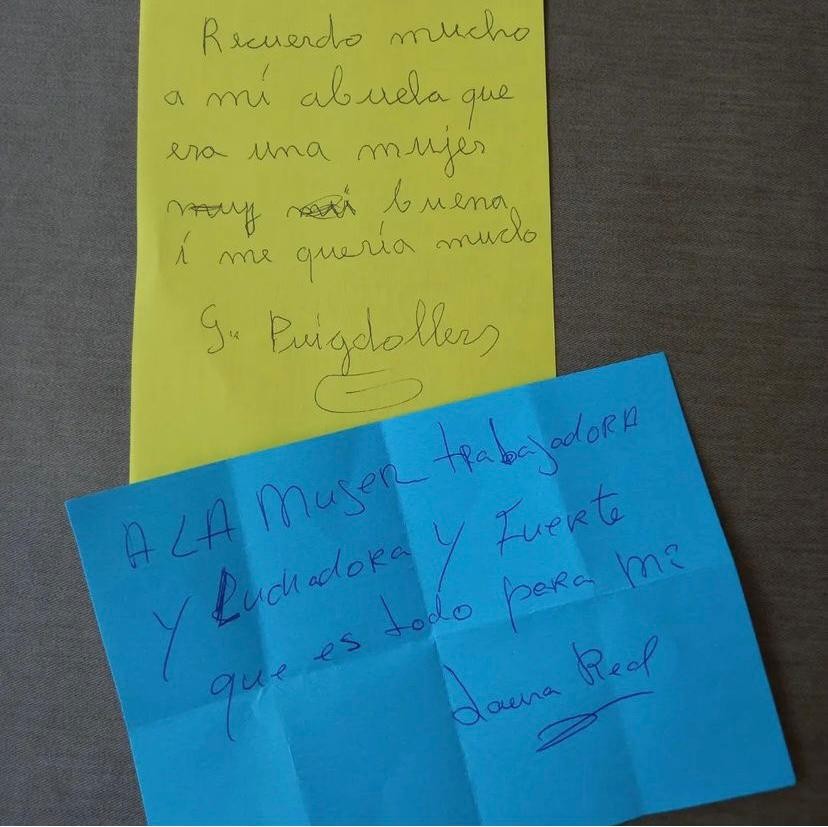 Recuerdo mucho
a mi abuela que
era una mujer
muy buena
i me quería mucho
G. Puigdollers
A LA MUJER trabajadORA
Y LuchadORA Y FuERtE
que es todo para mi
Laura Red